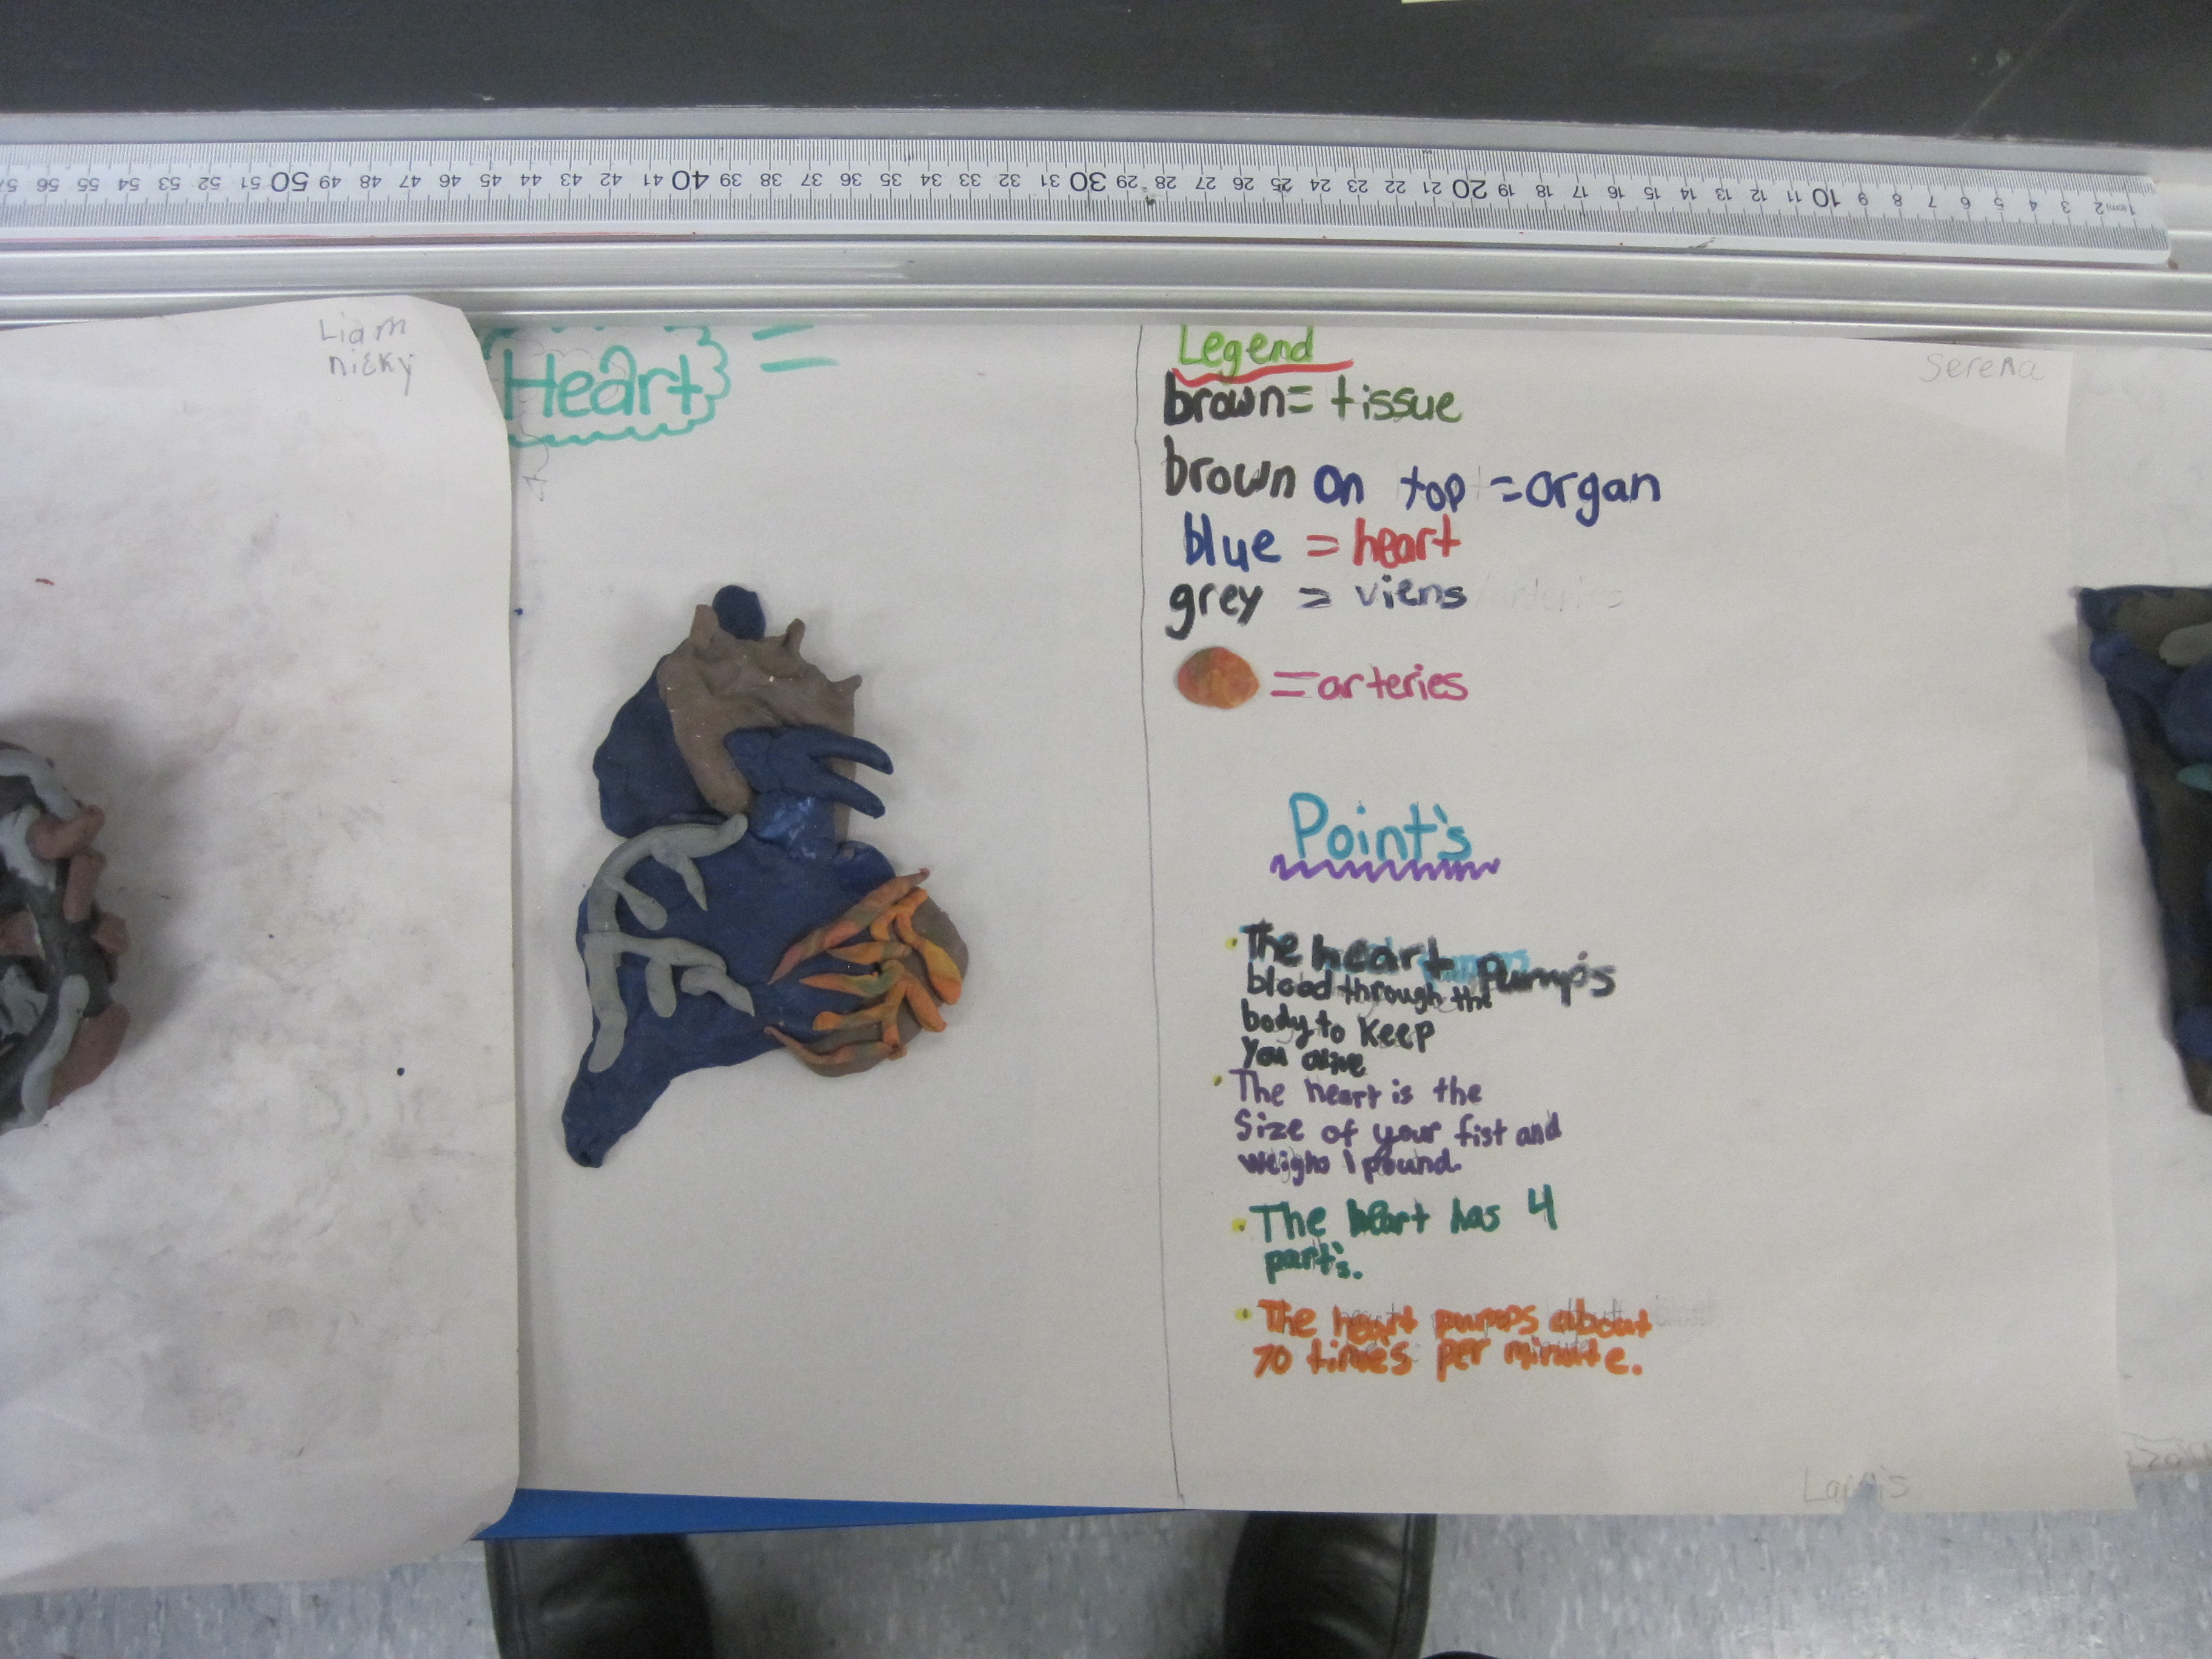 57 56 55 54 53 52 51 50 49 48 47 46 45 44 43 42 41 40 39 38 37 36 35 34 33 32 31 30 29 28 27 26 25 24 23 22 21 20 19 18 17 16 15 14 13 12 11 10 9 8 7 6 5 4 3 2 1
Liam
nicky
Heart
Legend
Serena
brown = tissue
brown on top = organ
blue = heart
grey = viens
= arteries
Point's
The heart pump's
blood through the
body to keep
you alive
The heart is the
size of your fist and
weighs 1 pound.
The heart has 4
part's.
The heart pumps about
70 times per minute.